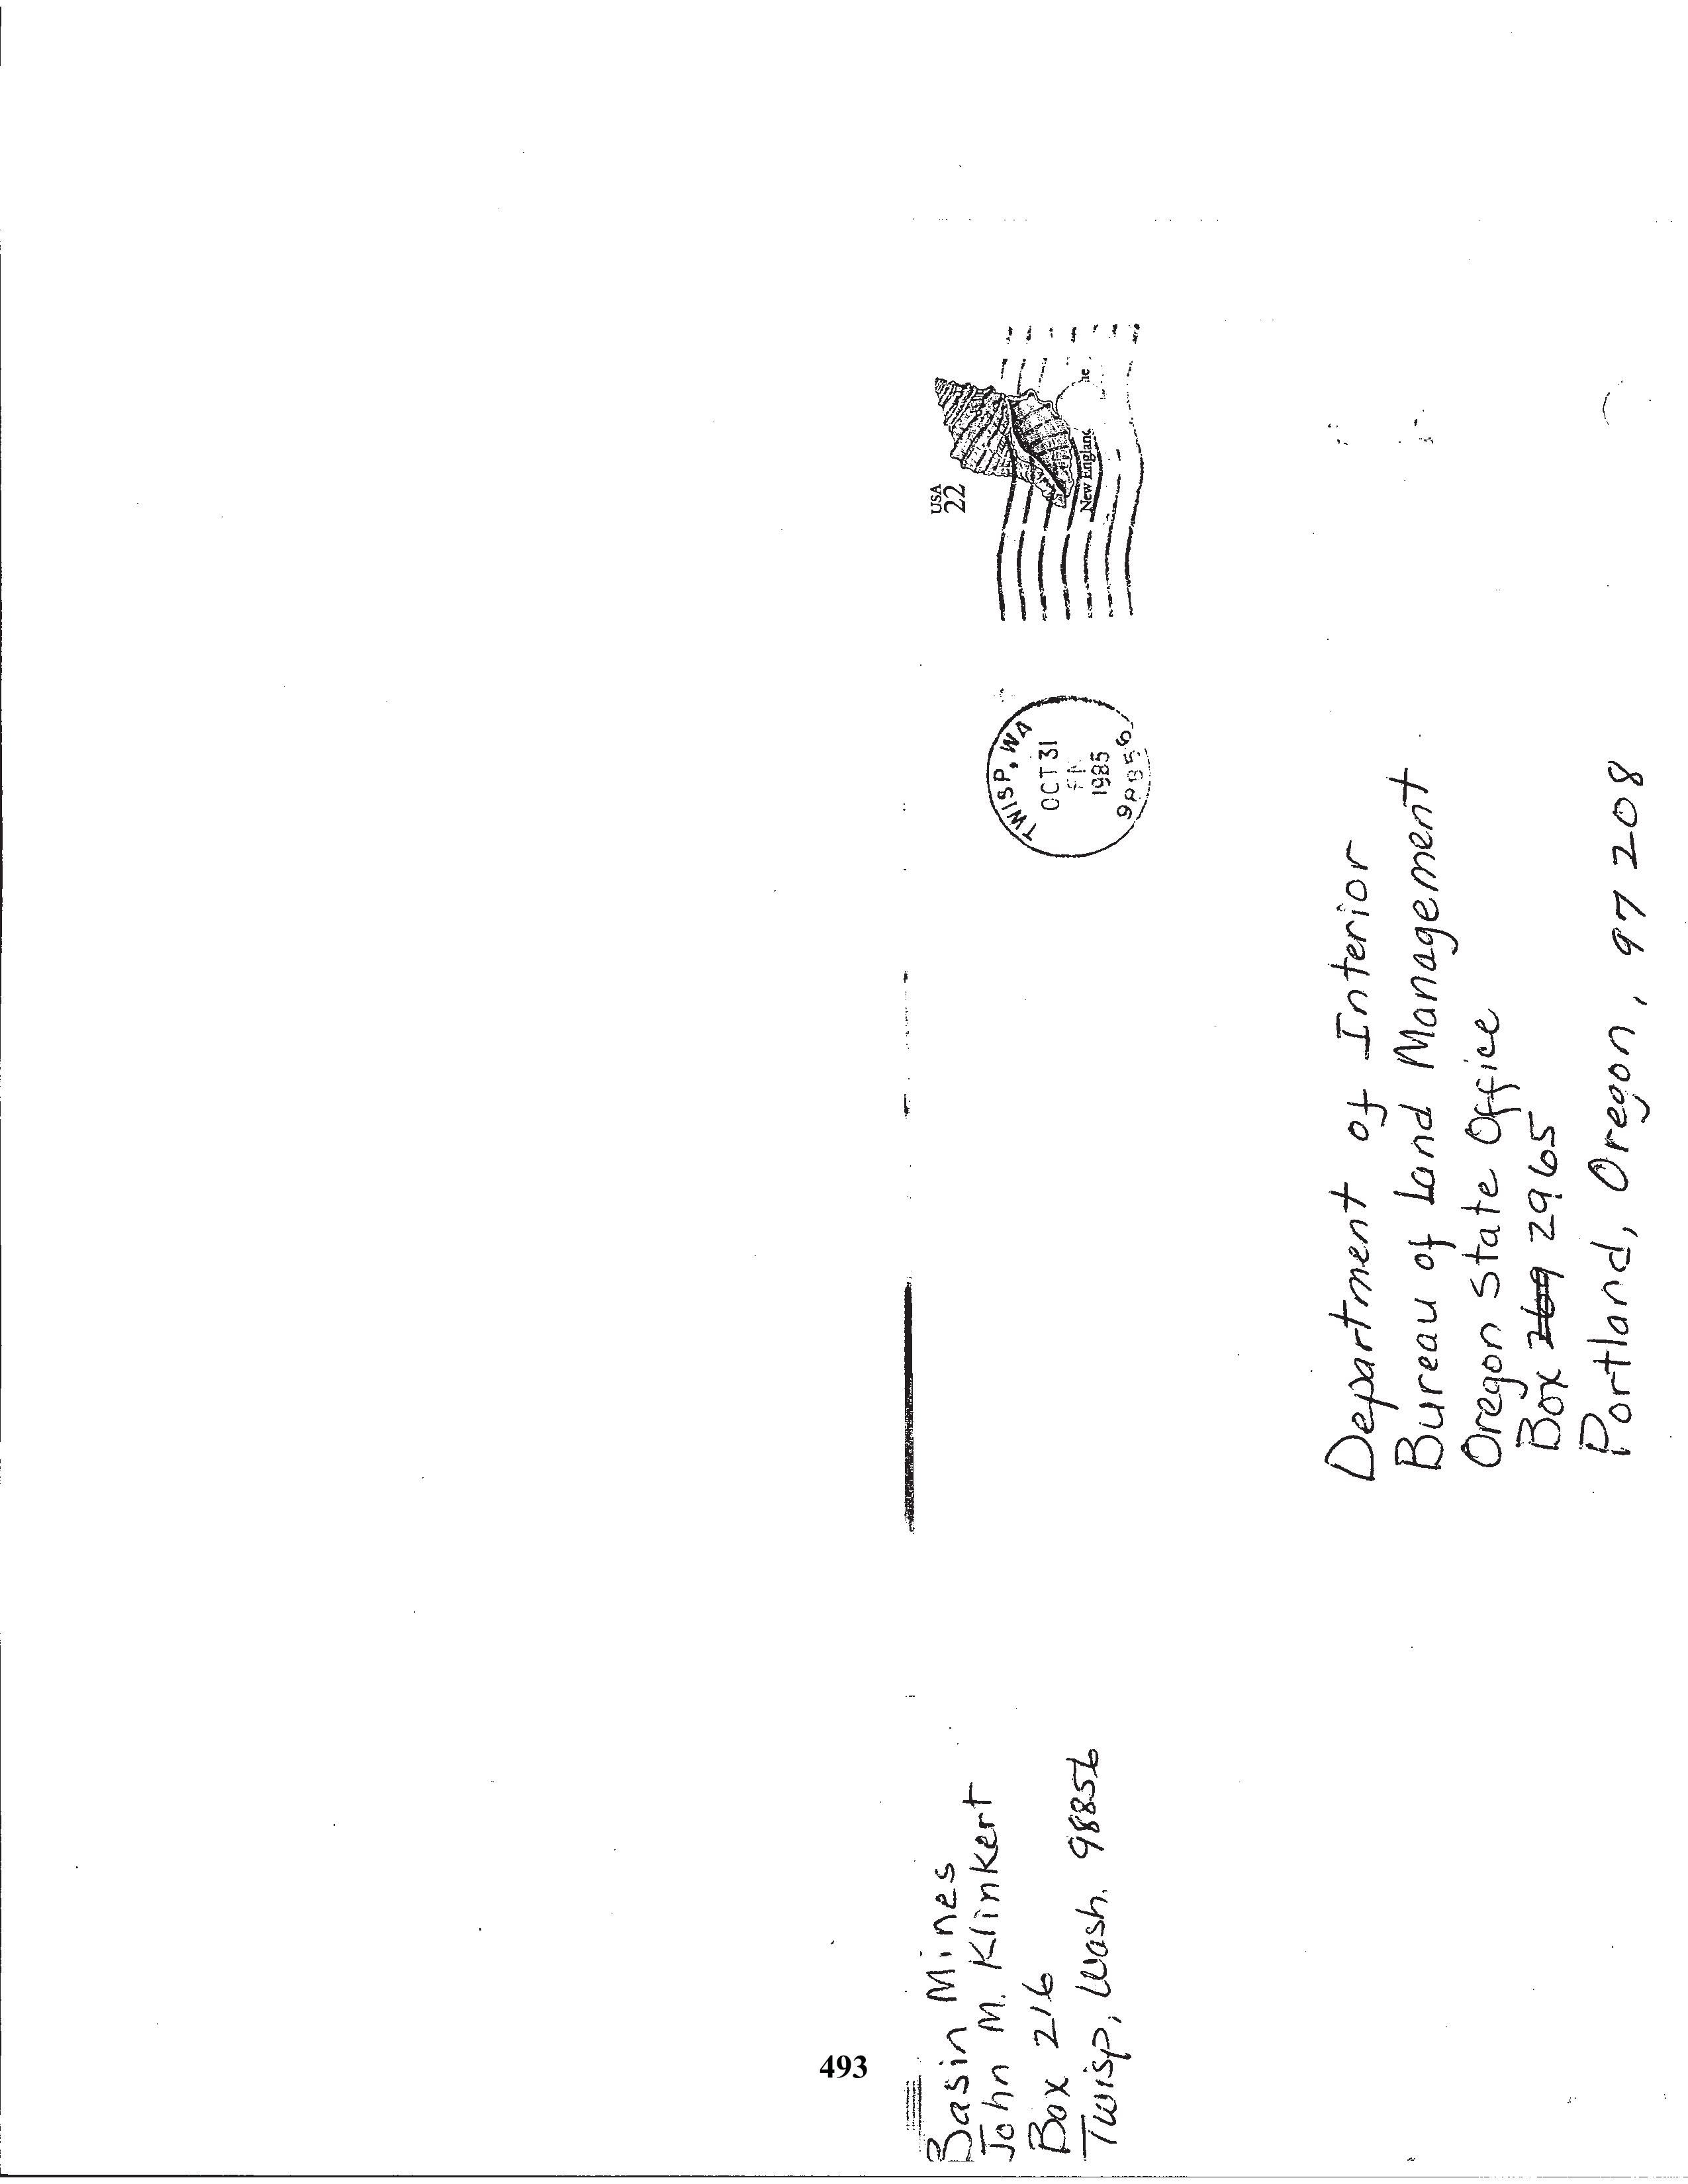 Basin Mines
John M. Klinkert
Box 216
Twisp, Wash. 98856
TWISP, WA
OCT 31
1985
98856
USA
22
New England
Department of Interior
Bureau of Land Management
Oregon State Office
Box 269 2965
Portland, Oregon, 97208
493